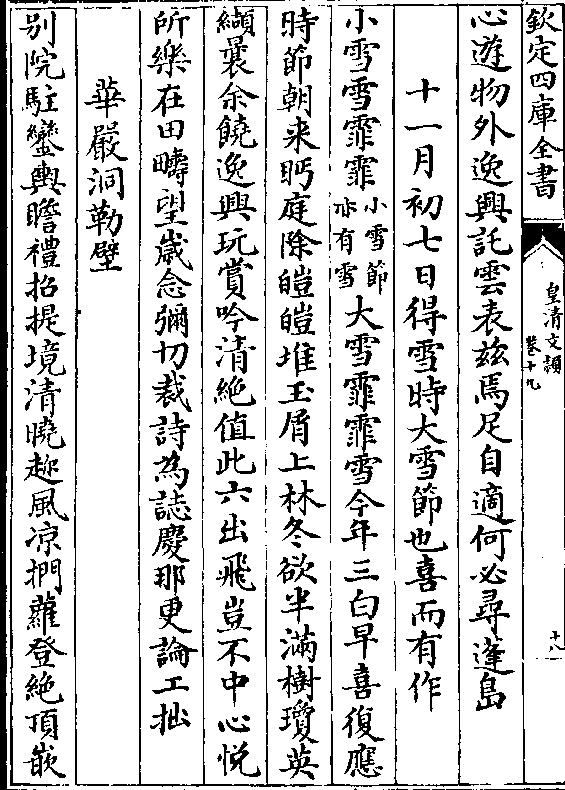 欽定四庫全書
皇清文穎
卷十九
十八
心遊物外逸興託雲表兹焉足自適何必尋蓬島
十一月初七日得雪時大雪節也喜而有作
小雪雪霏霏小雪節亦有雪大雪霏霏雪今年三白早喜復應
時節朝来眄庭除皚皚堆玉屑上林冬欲半滿樹瓊英
纈曩余饒逸興玩賞吟清絶值此六出飛豈不中心悦
所樂在田疇望嵗念彌切裁詩為誌慶那更論工拙
華嚴洞勒壁
别院駐鑾輿瞻禮招提境清曉趂風凉捫蘿登絶頂嵌